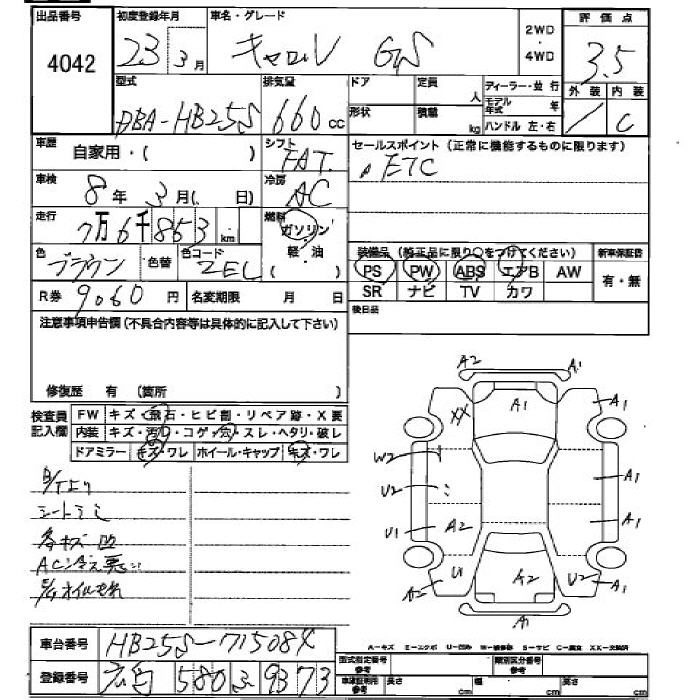 出品番号
4042
初度登録年月
23年3月
車名・グレード
キャロル GS
2WD
・
4WD
評価点
3.5
外装
内装
/
C
型式
DBA-HB25S
排気量
660cc
ドア
形状
定員
人
積載
kg
ディーラー・並行
モデル年式
年
ハンドル 左・右
車歴
自家用・( )
シフト
FAT.
セールスポイント (正常に機能するものに限ります)
ETC
車検
8年3月( 日)
冷房
AC
走行
7万6千853km
燃料
ガソリン
軽・油
色
ブラウン
色替
色コード
ZEC
装備品 (純正品に限り○をつけてください)
PS PW ABS エアB AW
SR ナビ TV カワ
新車保証書
有・無
R券
9060円
名変期限 月 日
後日品
注意事項申告欄(不具合内容等は具体的に記入して下さい)
修復歴 有 (箇所 )
検査員記入欄
FW キズ・飛石・ヒビ割・リペア跡・X要
内装 キズ・汚れ・コゲ・穴・スレ・ヘタリ・破レ
ドアミラー キズ・ワレ ホイール・キャップ キズ・ワレ
シートシミ
各キズ凹
AC冷え悪い
オイルもれ
A2 A1
XX A1 A1
W2
U2 A1
U1 A2 A1
U1 A2 U2 A1
A2
A1
A-キズ E-エクボ U-凹み W-補修跡 S-サビ C-腐食 XX-交換済
車台番号
HB25S-71508X
登録番号
広島 580 ふ 9373
型式指定番号
参考
類別区分番号
参考
車庫証明用
参考
長さ cm
幅 cm
高さ cm